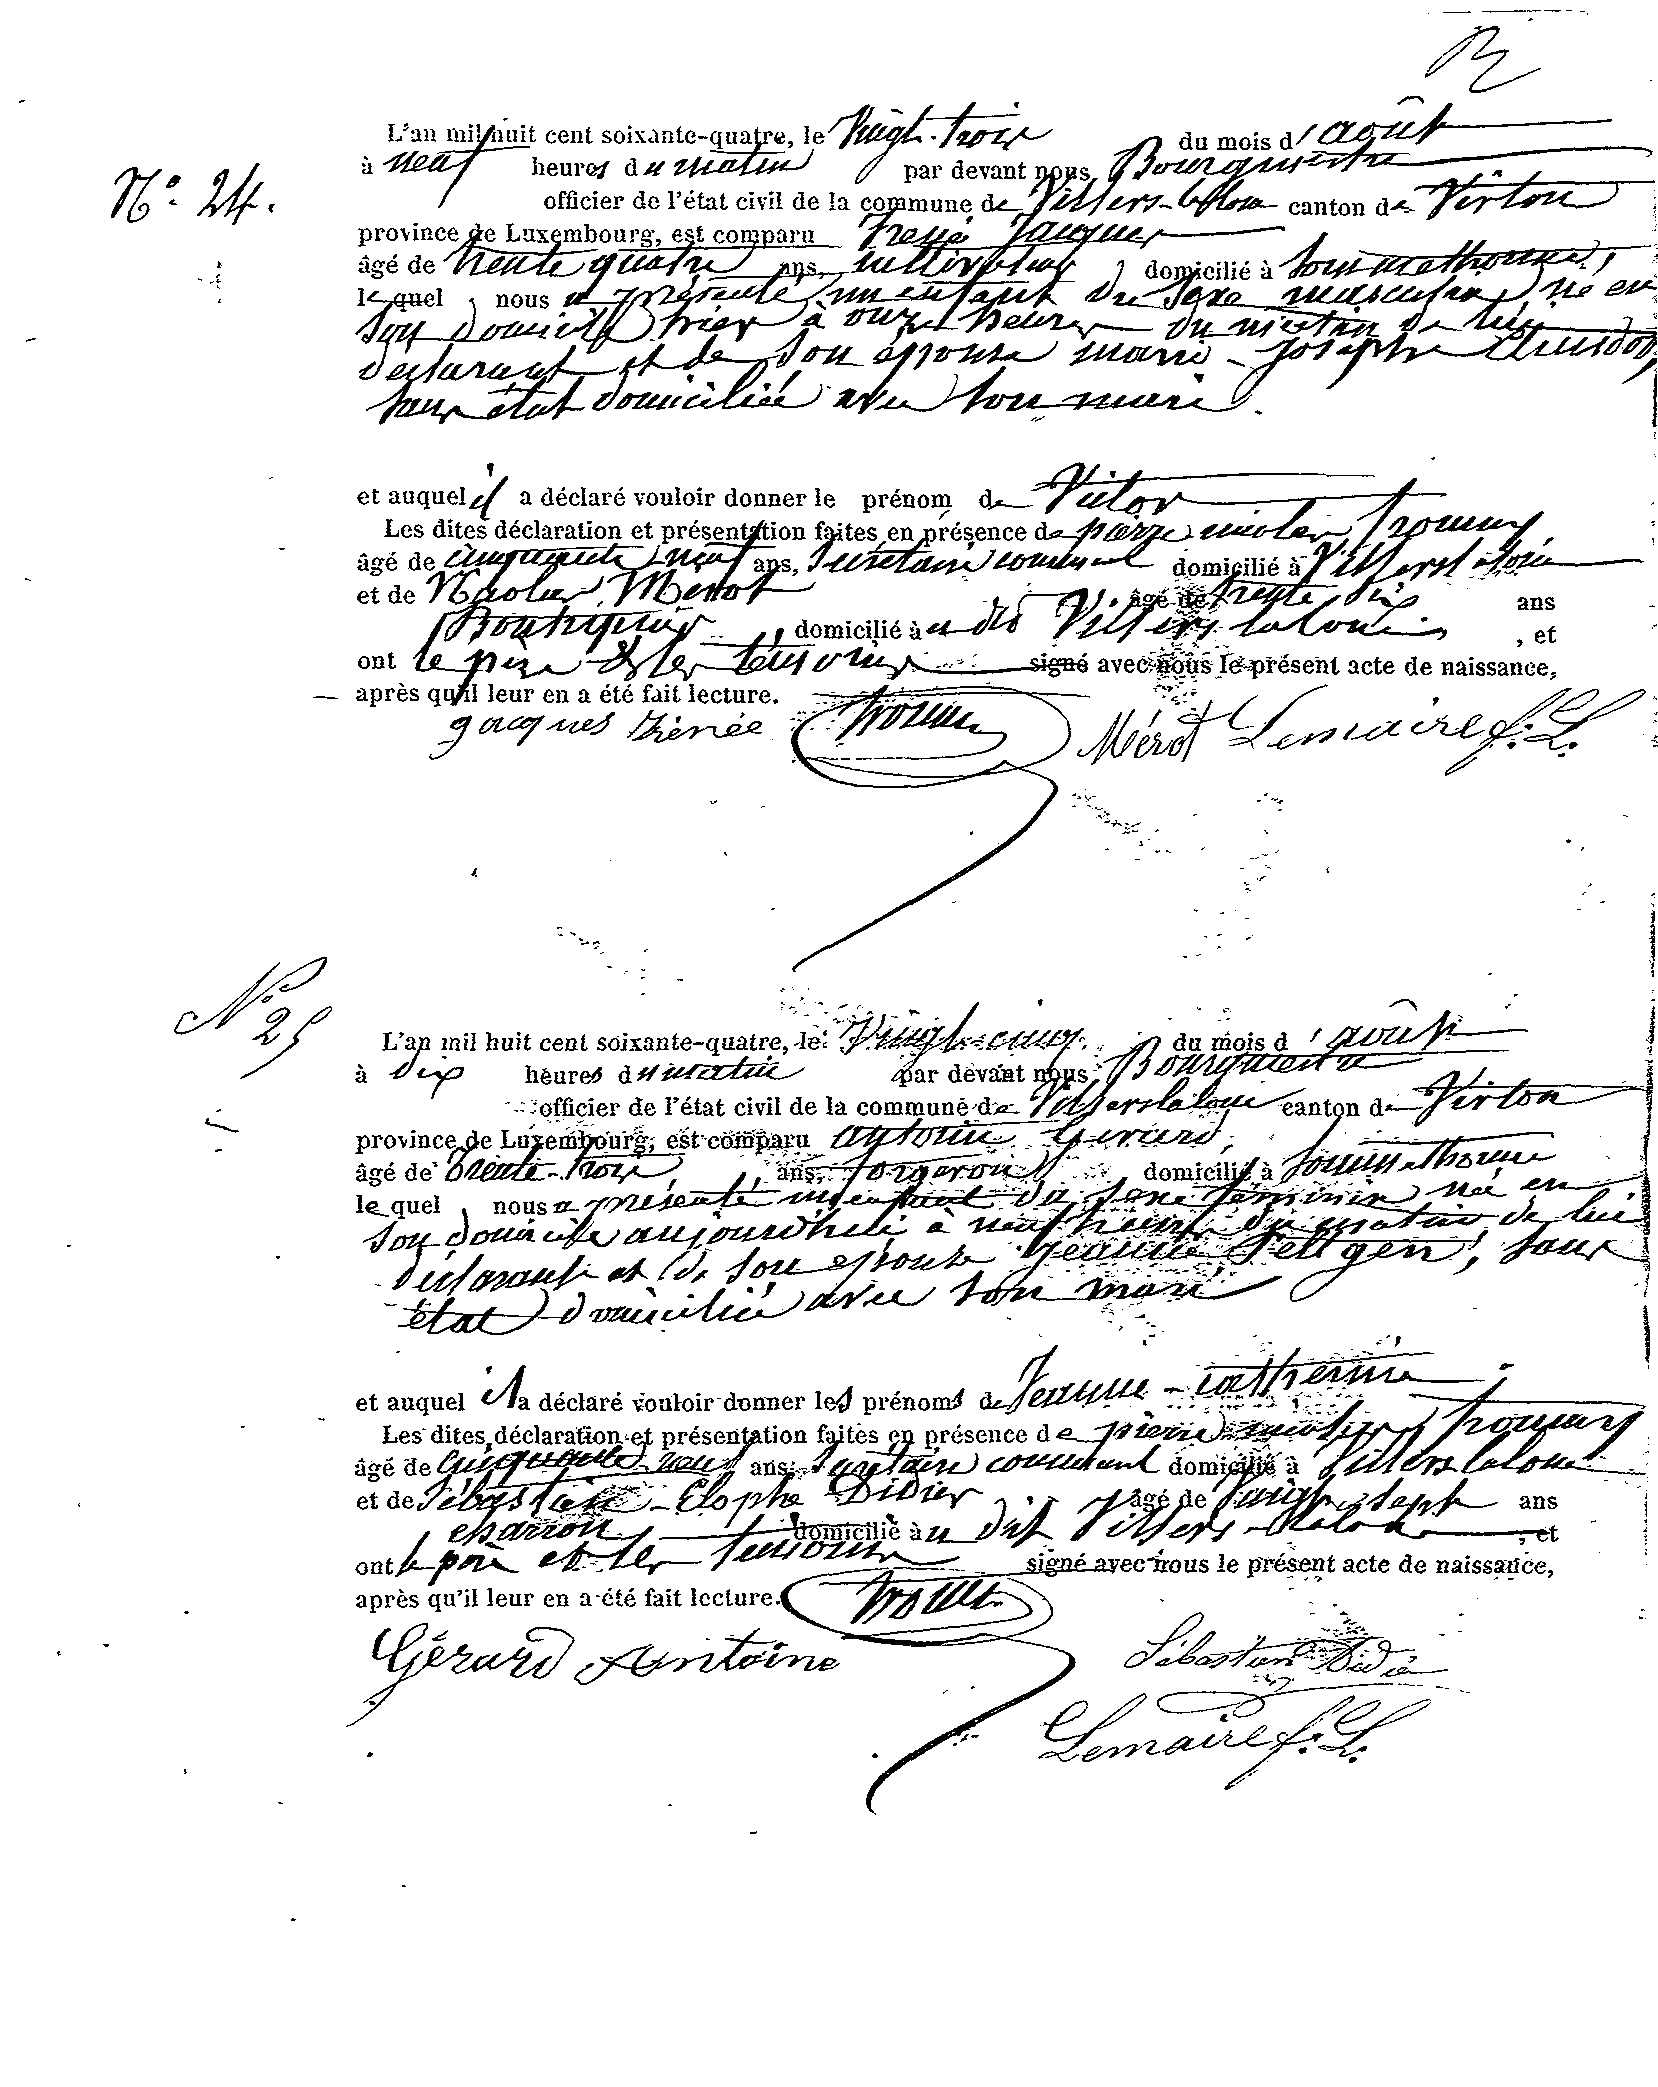 N.° 24.
L'an mil huit cent soixante-quatre, le Vingt-trois du mois d'août
à neuf heures du matin par devant nous Bourgmestre
officier de l'état civil de la commune de Villers-laloue canton de Virton
province de Luxembourg, est comparu Jacques
âgé de trente quatre ans, cultivateur domicilié à Sommethonne,
lequel nous a présenté un enfant du sexe masculin, né en
son domicile hier à onze heures du matin de lui
déclarant et de son épouse marie-josephe
sans état domiciliée avec son mari.
et auquel il a déclaré vouloir donner le prénom de Victor
Les dites déclaration et présentation faites en présence de pierre nicolas
âgé de cinquante neuf ans, Secrétaire communal domicilié à Villers-laloue
et de Nicolas Merot âgé de trente six ans
domicilié au dit Villers laloue, et
ont le père et les témoins signé avec nous le présent acte de naissance,
après qu'il leur en a été fait lecture.
jacques Mérot Lemaire f. L.
N° 25
L'an mil huit cent soixante-quatre, le Vingt-cinq du mois d'août
à dix heures du matin par devant nous Bourgmestre
officier de l'état civil de la commune de Villers laloue canton de Virton
province de Luxembourg, est comparu antoine Gerard,
âgé de trente-trois ans, forgeron domicilié à Sommethonne
lequel nous a présenté un enfant du sexe féminin née en
son domicile aujourd'hui à neuf heures du matin de lui
déclarant et de son épouse Jeanne Feltgen, sans
état domiciliée avec son mari
et auquel il a déclaré vouloir donner les prénoms de Jeanne-catherine
Les dites déclaration et présentation faites en présence de pierre nicolas
âgé de cinquante neuf ans, Secrétaire communal domicilié à Villers laloue
et de Sébastien-Elophe Didier âgé de vingt-sept ans
charron domicilié au dit Villers-laloue, et
ont le père et les témoins signé avec nous le présent acte de naissance,
après qu'il leur en a été fait lecture.
Gérard Antoine Sébastien Didier
Lemaire f. L.